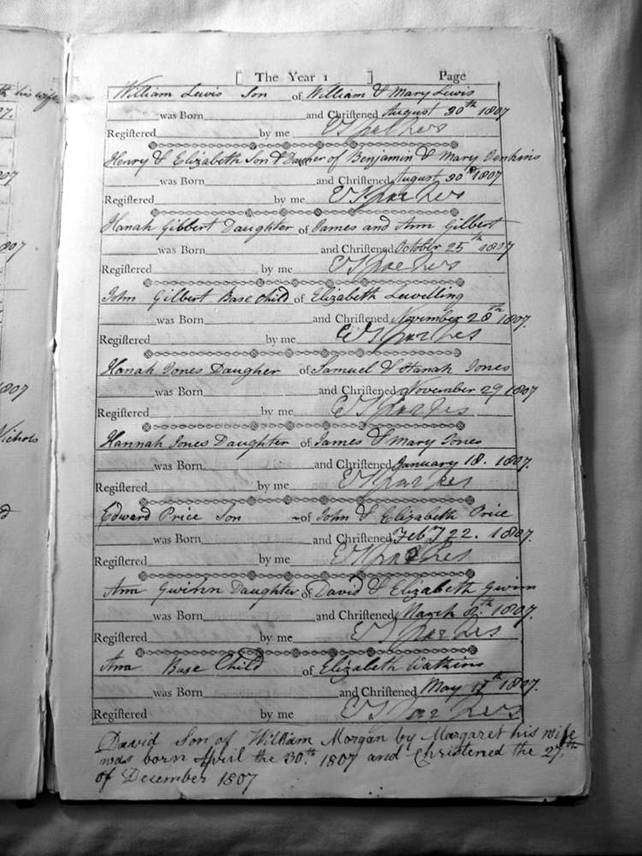 [ The Year 1 ] Page
William Lewis Son of William & Mary Lewis
was Born and Chriſtened August 30th 1807
Regiſtered by me
Henry & Elizabeth Son & Daughter of Benjamin & Mary Jenkins
was Born and Chriſtened August 30th 1807
Regiſtered by me
Hanah Gibbert Daughter of James and Ann Gilbert
was Born and Chriſtened October 25th 1807
Regiſtered by me
John Gilbert Base Child of Elizabeth Lewelling
was Born and Chriſtened November 28th 1807.
Regiſtered by me
Hanah Jones Daugher of Samuel & Hanah Jones
was Born and Chriſtened November 29 1807
Regiſtered by me
Hannah Jones Daughter of James & Mary Jones
was Born and Chriſtened January 18. 1807.
Regiſtered by me
Edward Price Son of John & Elizabeth Price
was Born and Chriſtened Feby 22. 1807.
Regiſtered by me
Ann Gwinn Daughter of David & Elizabeth Gwinn
was Born and Chriſtened March 8th 1807.
Regiſtered by me
Ann Base Child of Elizabeth Watkins
was Born and Chriſtened May 17th 1807.
Regiſtered by me
David Son of William Morgan by Margaret his wife
was born April the 30.th 1807 and Christened the 27th
of December 1807